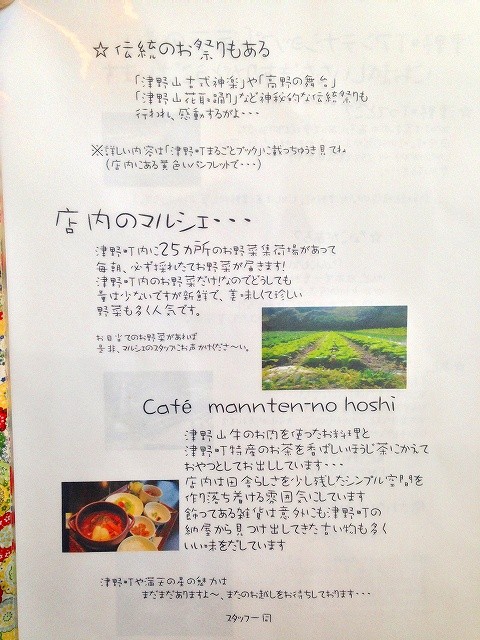 ☆伝統のお祭りもある
「津野山古式神楽」や「高野の舞台」
「津野山花取踊り」など神秘的な伝統祭りも
行われ、感動するがよ・・・
※詳しい内容は「津野町まるごとブック」に載っちゅうき見てね
(店内にある黄色いパンフレットで・・・)
店内のマルシェ・・・
津野町内に25カ所のお野菜集荷場があって
毎朝、必ず採れたてお野菜が届きます!
津野町内のお野菜だけ!なのでどうしても
量は少ないですが新鮮で、美味しくて珍しい
野菜も多く人気です。
お目当てのお野菜があれば
是非、マルシェのスタッフにお声かけくださ〜い。
Café mannten-no hoshi
津野山牛のお肉を使ったお料理と
津野町特産のお茶を香ばしいほうじ茶にかえて
おやつとしてお出ししています・・・
店内は田舎らしさを少し残したシンプル空間を
作り落ち着ける雰囲気にしています
飾ってある雑貨は意外にも津野町の
納屋から見つけ出してきた古い物も多く
いい味をだしています
津野町や満天の星の魅力は
まだまだありますよ〜、またのお越しをお待ちしております・・・
スタッフ一同